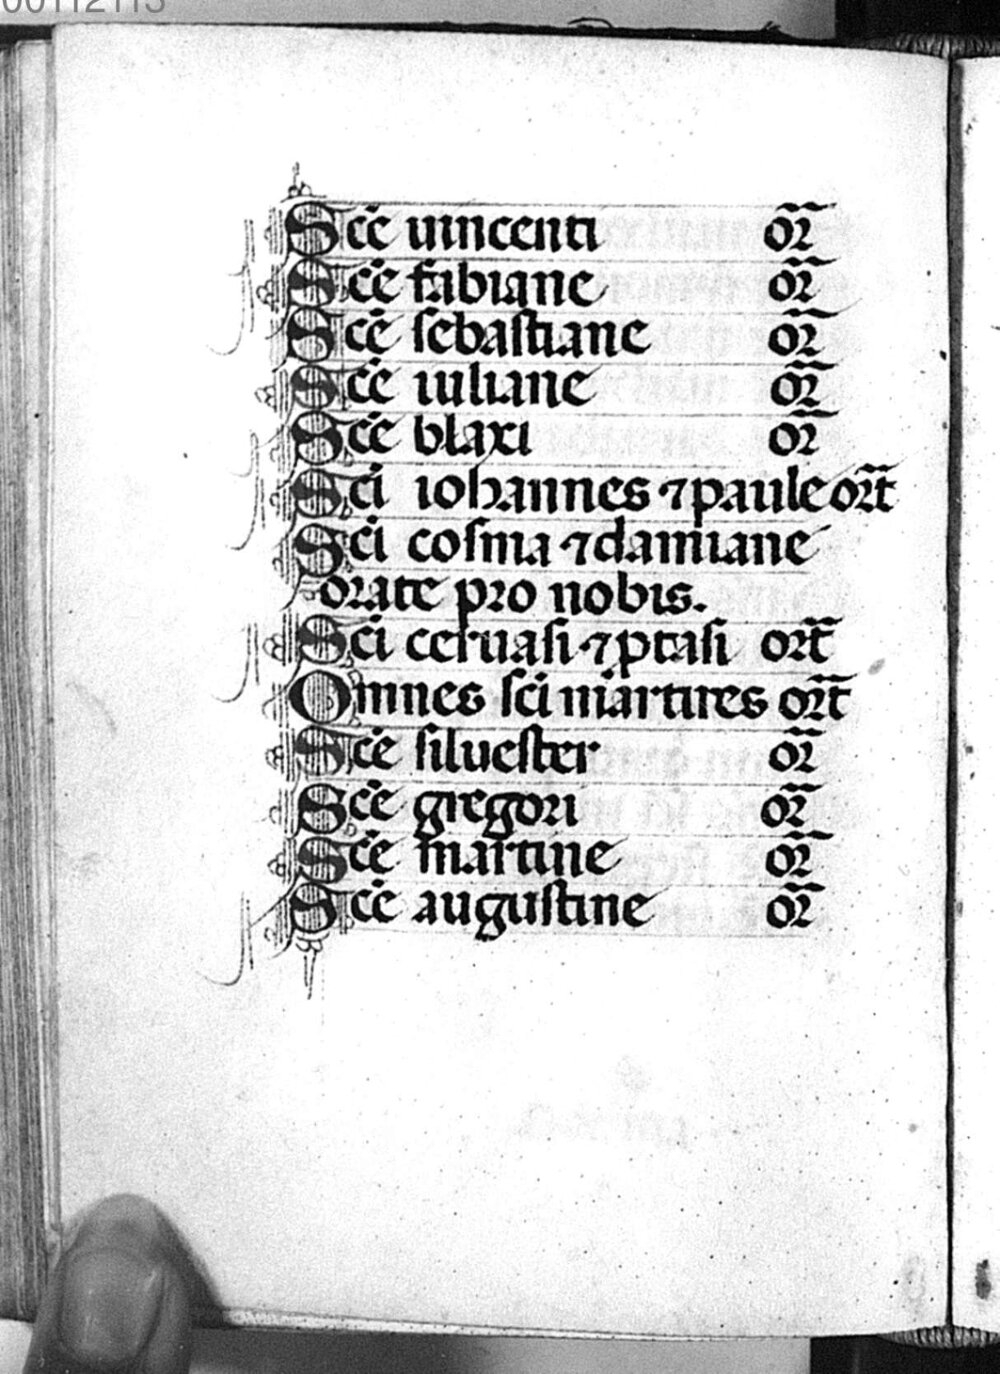 00112113
Scē uincenti or̄
Scē fabiane or̄
Scē sebastiane or̄
Scē iuliane or̄
Scē blaxi or̄
Sci iohannes ⁊ paule or̄t
Sci cosma ⁊ damiane
orate pro nobis.
Sci ceruasi ⁊ ꝓtasi or̄t
Omnes sci martires or̄t
Scē siluester or̄
Scē gregori or̄
Scē martine or̄
Scē augustine or̄